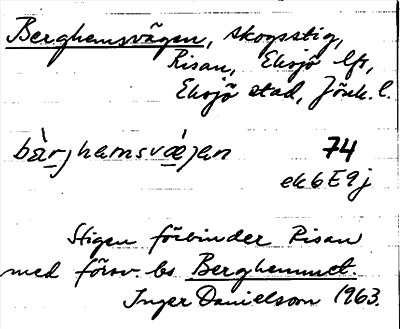 Berghemsvägen, skogsstig,
Risan, Eksjö lfs,
Eksjö stad, Jönk. l.
bær̀jhamsvǽjan 74
ek6E9j
Stigen förbinder Risan
med försv. bs Berghemmet.
Inger Danielsson 1963.